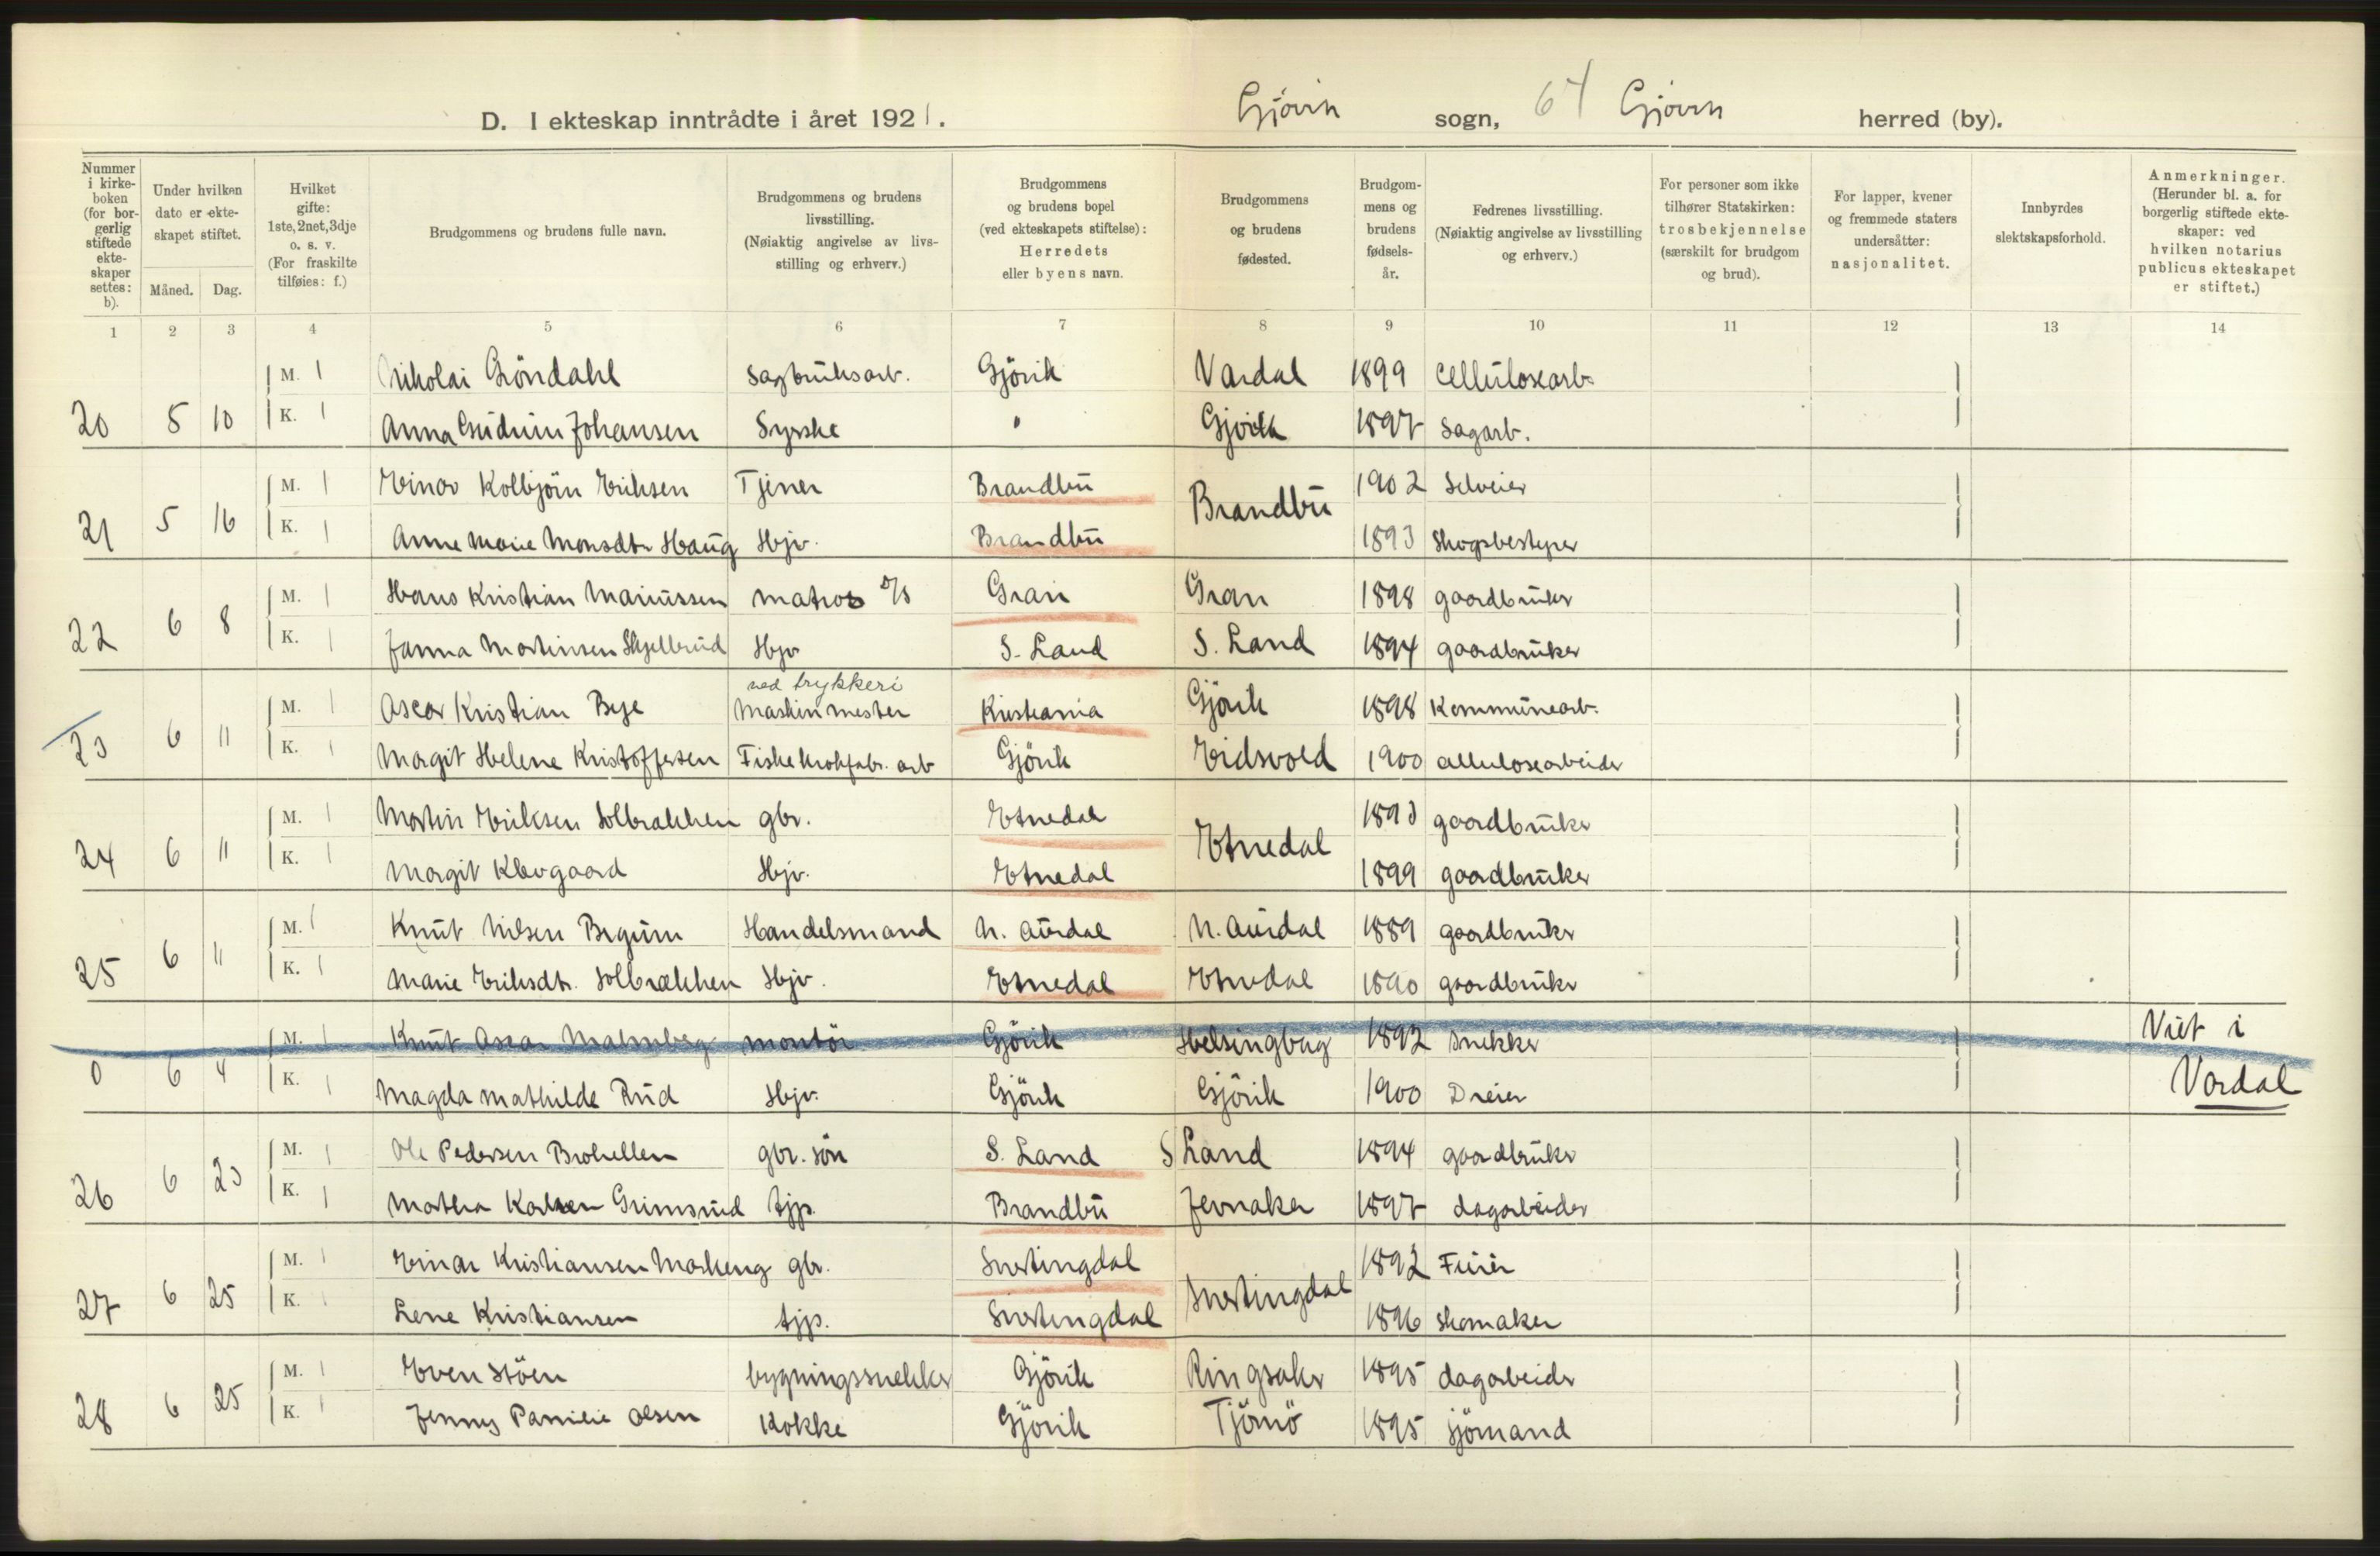 D. I ekteskap inntrådte i året 1921. Gjövik sogn, 64 Gjövik herred (by).
Nummer i kirke-boken (for bor-gerlig stiftede ekte-skaper settes: b).
Under hvilken dato er ekte-skapet stiftet.
Måned. Dag.
Hvilket gifte: 1ste, 2net, 3dje o. s. v. (For fraskilte tilføies: f.)
Brudgommens og brudens fulle navn.
Brudgommens og brudens livsstilling. (Nøiaktig angivelse av livs-stilling og erhverv.)
Brudgommens og brudens bopel (ved ekteskapets stiftelse): Herredets eller byens navn.
Brudgommens og brudens fødested.
Brudgom-mens og brudens fødsels-år.
Fedrenes livsstilling. (Nøiaktig angivelse av livsstilling og erhverv.)
For personer som ikke tilhører Statskirken: trosbekjennelse (særskilt for brudgom og brud).
For lapper, kvener og fremmede staters undersåtter: nasjonalitet.
Innbyrdes slektskapsforhold.
Anmerkninger. (Herunder bl. a. for borgerlig stiftede ekte-skaper: ved hvilken notarius publicus ekteskapet er stiftet.)
1 2 3 4 5 6 7 8 9 10 11 12 13 14
M. 1 Nikolai Gröndahl Sagbruksarb. Gjövik Vardal 1899 Cellulosearb.
20 5 10 K. 1 Anna Gudrun Johansen Syerske " Gjövik 1897 Sagarb.
M. 1 Einar Kolbjörn Eriksen Tjener Brandbu Brandbu 1902 Selveier
21 5 16 K. 1 Anne Marie Monsdtr Haug Hjv. Brandbu 1893 Skogsbestyrer
M. 1 Hans Kristian Mariussen matros D/S Gran Gran 1898 gaardbruker
22 6 8 K. 1 Janna Martinsen Skjelbreid Hjv S. Land S. Land 1894 gaardbruker
ved trykkeri
M. 1 Oscar Kristian Bye Maskinmester Kristiania Gjövik 1898 Kommunearb.
23 6 11 K. 1 Margit Helene Kristoffersen Fiskekrokfabr. arb Gjövik Eidsvold 1900 cellulosearbeider
M. 1 Martin Eriksen Solbrækken gbr. Etnedal Etnedal 1893 gaardbruker
24 6 11 K. 1 Margit Klevgaard Hjv. Etnedal 1899 gaardbruker
M. 1 Knut Nilsen Brguin Handelsmand N. Aurdal N. Aurdal 1889 gaardbruker
25 6 11 K. 1 Marie Eriksdtr. Solbrækken Hjv. Etnedal Etnedal 1890 gaardbruker
M. 1 Knut Oscar Malmberg montör Gjövik Helsingborg 1892 Snekker Viet i
0 6 4 K. 1 Magda Mathilde Rud Hjv. Gjövik Gjövik 1900 Dreier Vardal
M. 1 Ole Pedersen Brohellen gbr. sön S. Land S Land 1894 gaardbruker
26 6 23 K. 1 Martha Karlsen Grimsrud tjp. Brandbu Jevnaker 1897 dagarbeider
M. 1 Einar Kristiansen Markeng gbr. Snertingdal Snertingdal 1892 Feier
27 6 25 K. 1 Lene Kristiansen tjp. Snertingdal 1896 Skomaker
M. 1 Even Stöen bygningssnekker Gjövik Ringsaker 1895 dagarbeider
28 6 25 K. 1 Jenny Olsen Kokke Gjövik Tjömö 1895 sjömand